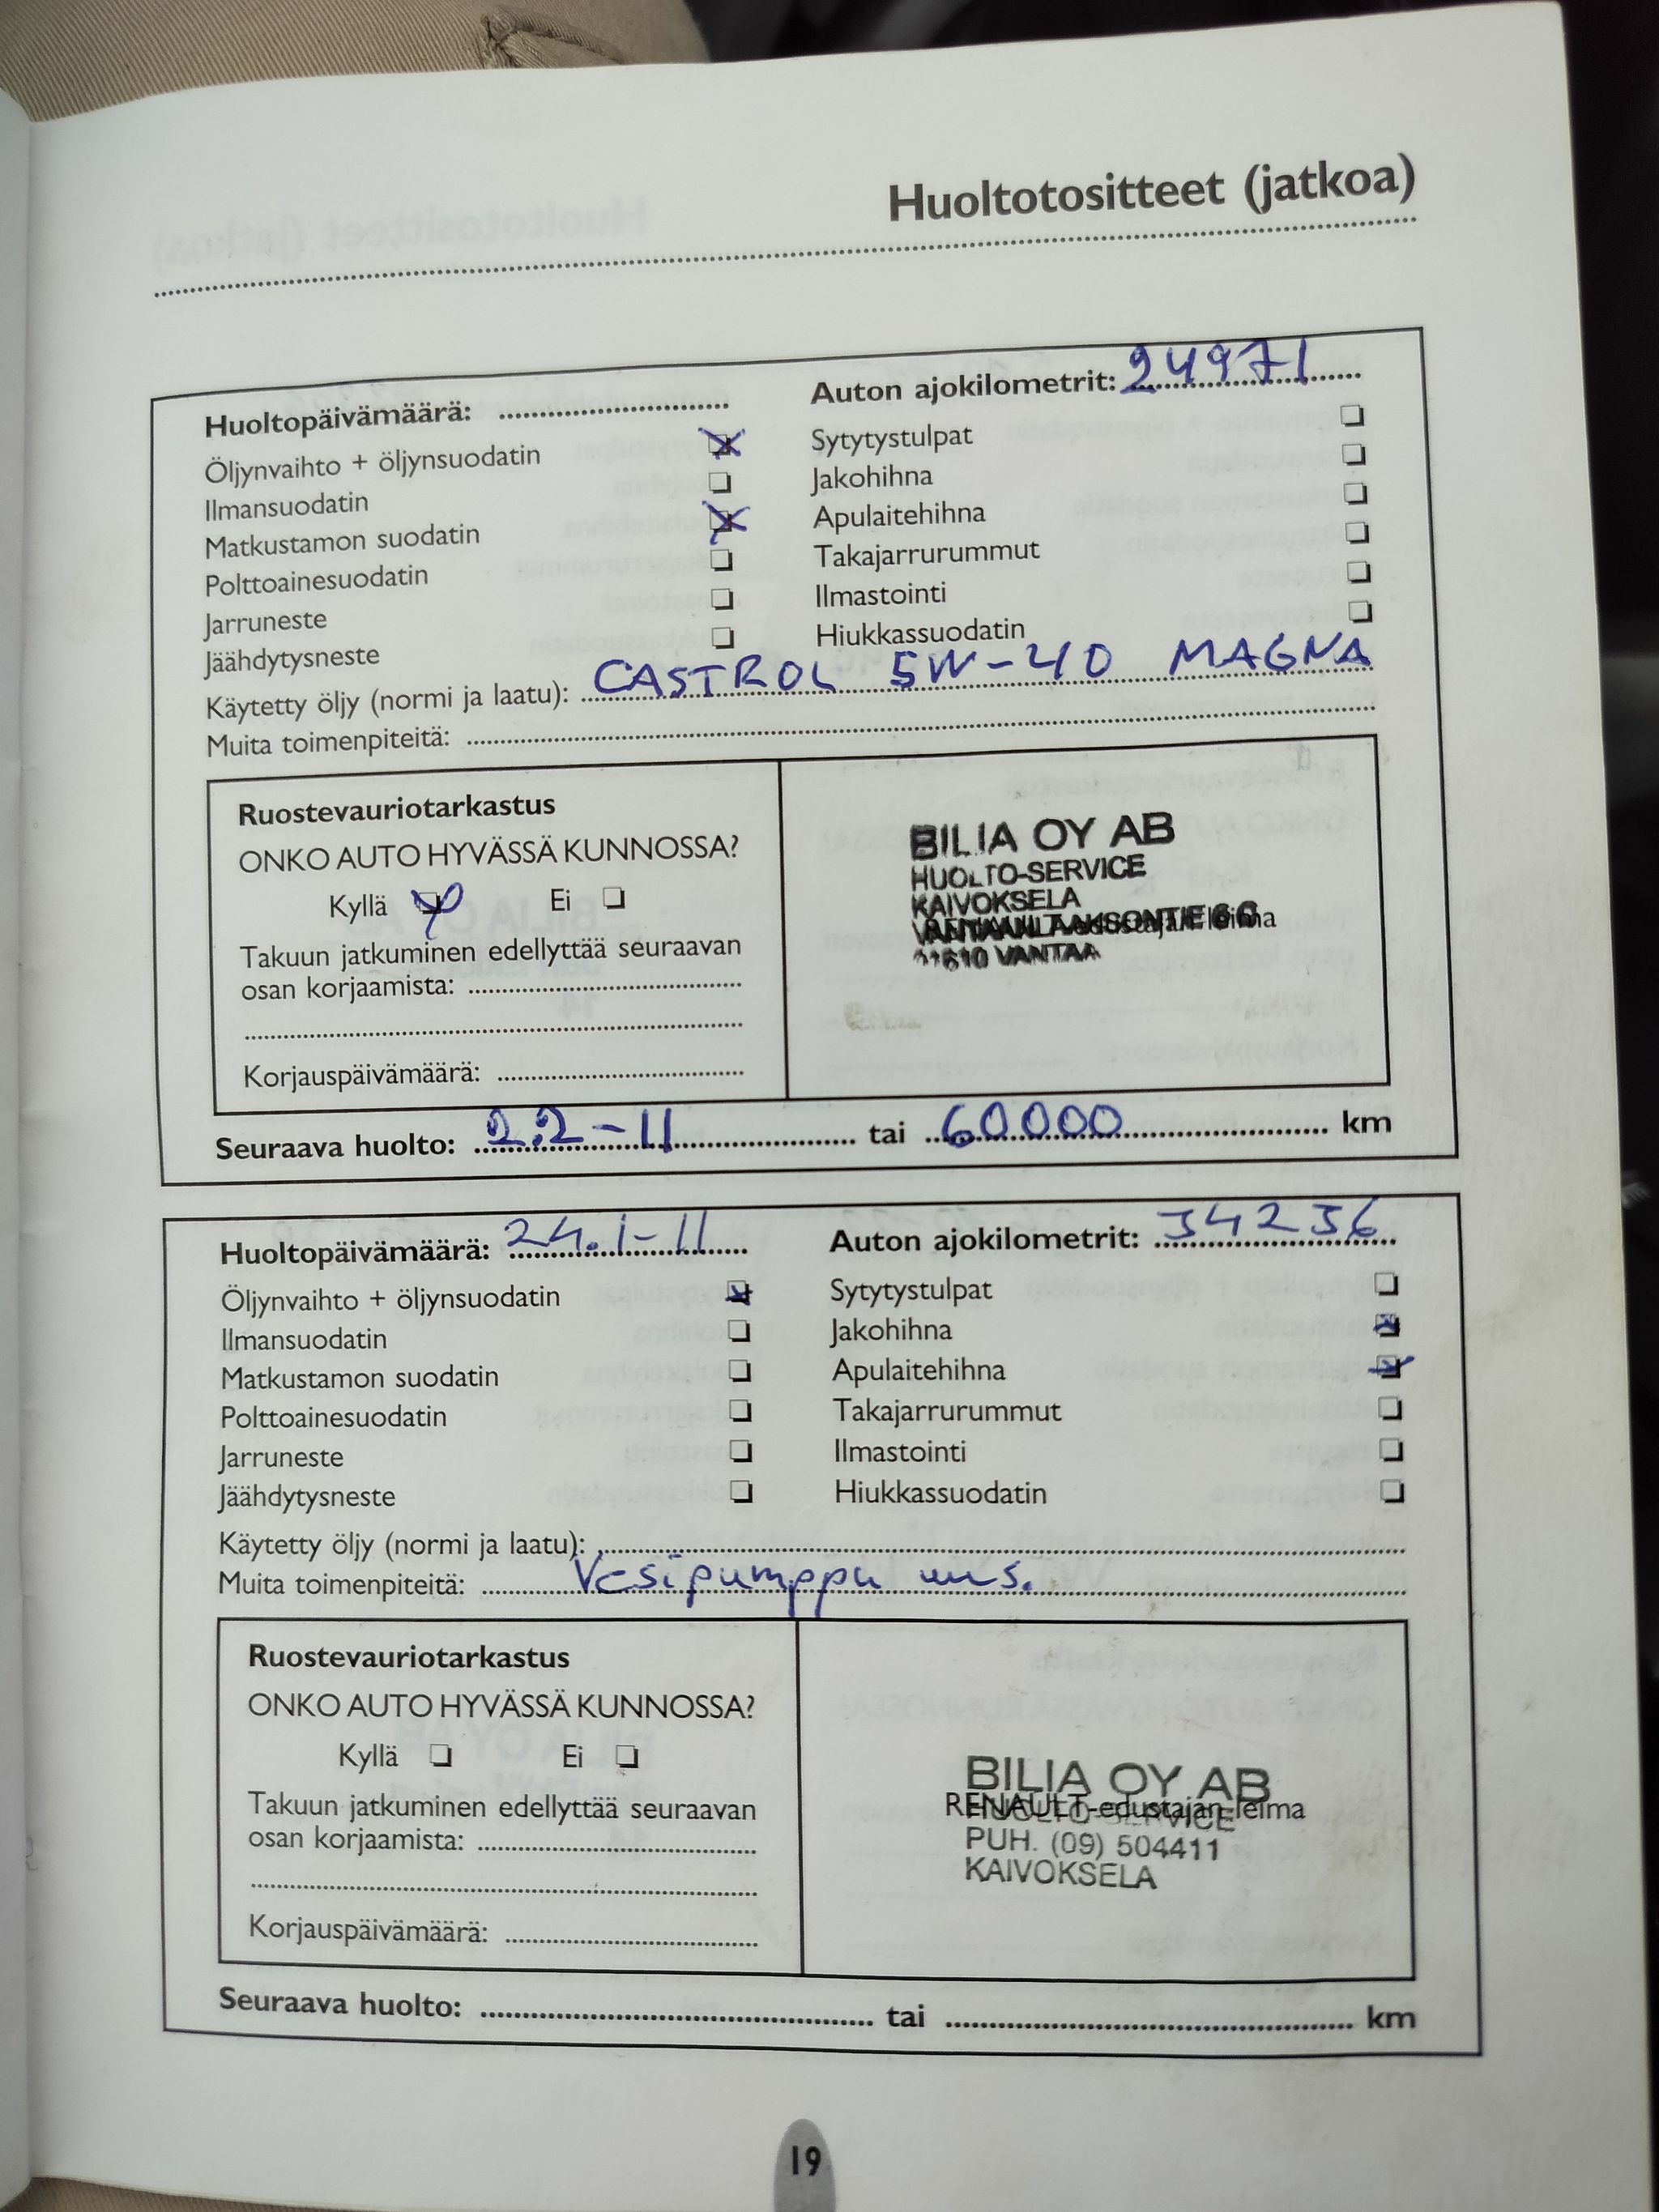 Huoltotositteet (jatkoa)
Huoltopäivämäärä:
Auton ajokilometrit: 24971
Öljynvaihto + öljynsuodatin
Sytytystulpat
Ilmansuodatin
Jakohihna
Matkustamon suodatin
Apulaitehihna
Polttoainesuodatin
Takajarrurummut
Jarruneste
Ilmastointi
Jäähdytysneste
Hiukkassuodatin
Käytetty öljy (normi ja laatu): CASTROL 5W-40 MAGNA
Muita toimenpiteitä:
Ruostevauriotarkastus
ONKO AUTO HYVÄSSÄ KUNNOSSA?
Kyllä Ei
Takuun jatkuminen edellyttää seuraavan
osan korjaamista:
Korjauspäivämäärä:
BILIA OY AB
HUOLTO-SERVICE
KAIVOKSELA
VANTAA
Seuraava huolto: 2.2-11 tai 60000 km
Huoltopäivämäärä: 24.1-11
Auton ajokilometrit: 34236
Öljynvaihto + öljynsuodatin
Sytytystulpat
Ilmansuodatin
Jakohihna
Matkustamon suodatin
Apulaitehihna
Polttoainesuodatin
Takajarrurummut
Jarruneste
Ilmastointi
Jäähdytysneste
Hiukkassuodatin
Käytetty öljy (normi ja laatu):
Muita toimenpiteitä: Vesipumppu uus.
Ruostevauriotarkastus
ONKO AUTO HYVÄSSÄ KUNNOSSA?
Kyllä Ei
Takuun jatkuminen edellyttää seuraavan
osan korjaamista:
Korjauspäivämäärä:
BILIA OY AB
RENAULT-edustajan leima
HUOLTO-SERVICE
PUH. (09) 504411
KAIVOKSELA
Seuraava huolto: tai km
19